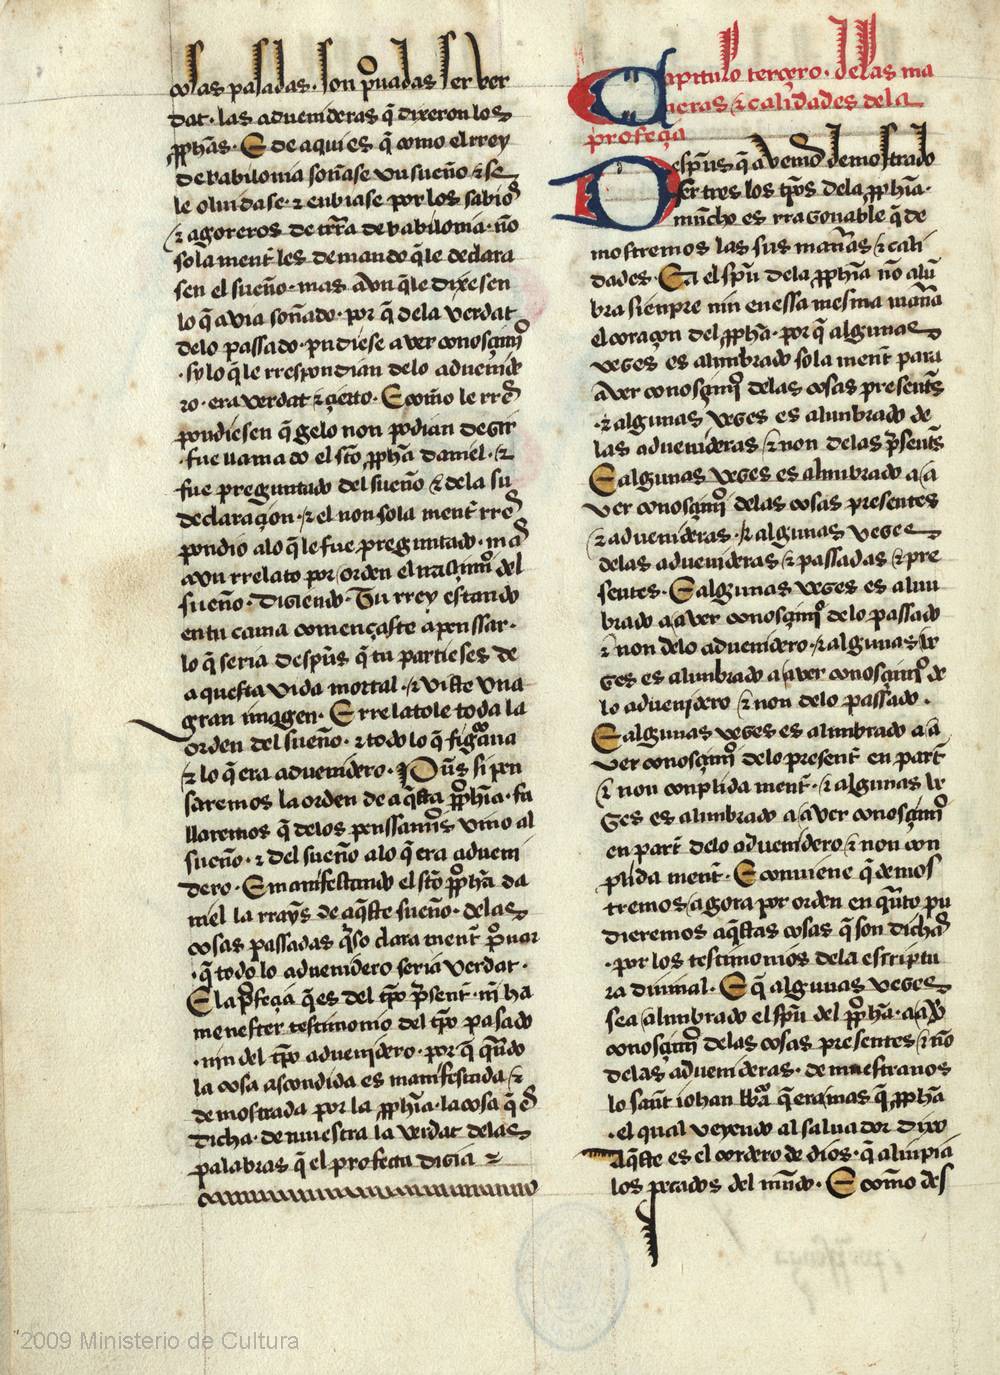 cosas pasadas. son p̃uadas ser ver
dat. las aduenideras q̃ dixeron los
ꝓph̃as. E de aqui es q̃ como el rrey
de babilonia soñase vn sueño ⁊ se
le oluidase. ⁊ enbiase por los sabios
⁊ agoreros de tr̃ra de babilonia. ño
sola ment̃ les demando q̃le declara
sen el sueño. mas avn q̃le dixesen
lo q̃ avia soñado. por q̃ dela verdat
delo passado. pudiese aver conosçimȷ̊
. sy lo q̃le rrespondian delo aduenide
ro. era verdat ⁊ çierto. E como le rres̃
pondiesen q̃ gelo non podian dezir
. fue llamado el st̃o ꝓph̃a daniel. ⁊
fue preguntado del sueño ⁊ dela su
declaraçion. ⁊ el non sola ment̃ rres̃
pondio alo q̃ le fue preguntado. mas
avn rrelato por orden el nasçimȷ̊ del
sueño. diziendo. Tu rrey estando
en tu cama començaste a penssar.
lo q̃ seria despũs q̃ tu partieses de
aquesta vida mortal. ⁊ viste vna
gran imagen. E rrelatole toda la
orden del sueño. ⁊ todo lo q̃ figᵃua
⁊ lo q̃ era aduenidero. Pũs si pen
saremos la orden de aq̃sta ꝓph̃ia. fa
llaremos q̃ delos penssamȷ̊s vino al
sueño. ⁊ del sueño alo q̃ era adueni
dero. E manifestando el st̃o ꝓph̃a da
niel la rrays de aq̃ste sueño. delas
cosas passadas q̃so clara ment̃ p̃uar
. q̃ todo lo aduenidero seria verdat.
E la p̃feçia q̃ es del tp̃o p̃sent̃. nȷ̃ ha
menester testimonio del tp̃o pasado
. nin del tp̃o aduenidero. por q̃ qñdo
la cosa ascondida es manifestada ⁊
demostrada por la ꝓph̃ia. la cosa q̃ es̃
dicha. demuestra la verdat delas
palabras q̃ el profecta dizia
Capitulo terçero. delas ma
neras ⁊ calidades dela
profeçia
Despũs q̃ avemos demostrado
ser tres los tp̃os dela ꝓph̃ia.
mũcho es rrazonable q̃ de
mostremos las sus mañas ⁊ cali
dades. Ca el spũ dela ꝓph̃ia ño alũ
bra sienpre nin en essa mesma mañã
el coraçon del ꝓph̃a. por q̃ algunas
vezes es alunbrado sola ment̃ para
aver conosçimȷ̊ delas cosas presents̃
. ⁊ algunas vezes es alunbrado de
las aduenideras ⁊ non delas p̃sents̃
E algunas vezes es alunbrado a a
ver conosçimȷ̊ delas cosas presentes
⁊ aduenideras. ⁊ algunas vezes
delas aduenideras ⁊ passadas ⁊ pre
sentes. E algunas vezes es alun
brado a aver conosçimȷ̊ delo passado
⁊ non delo aduenidero. ⁊ algunas ve
zes es alunbrado a aver conosçimȷ̊ de
lo aduenidero ⁊ non delo passado.
E algunas vezes es alunbrado a a
ver conosçimȷ̊ delo present̃ en part̃
⁊ non conplida ment̃. ⁊ algunas ve
zes es alunbrado a aver conosçimȷ̊
en part̃ delo aduenidero ⁊ non con
plida ment̃. E conviene q̃ demos
tremos agora por orden en qũto pu
dieremos aq̃stas cosas q̃ son dichas
. por los testimonios dela escriptu
ra diuinal. E q̃ algunas vezes
sea alunbrado el spũ del ꝓph̃a. a aver
conosçimȷ̊ delas cosas presentes ⁊ ño
delas aduenideras. demuestranos
lo sant̃ iohan bb̃a q̃ era mas q̃ ꝓph̃a
. el qual veyendo al saluador dixo
aq̃ste es el cordero de dios. q̃ alinpia
los pecados del mũdo. E como des
"2009 Ministerio de Cultura